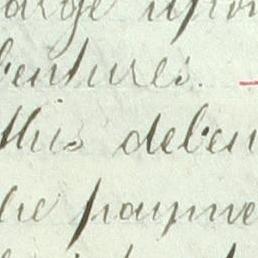 arge upon
bentures.
this deben
the payme